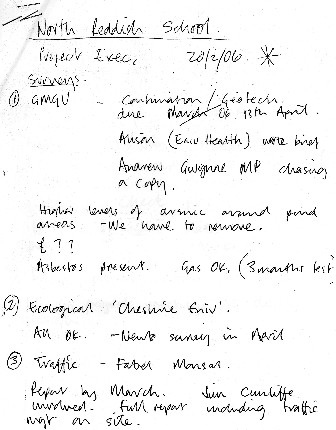 North Reddish School.
Project Exec. 20/2/06. *
Surveys.
① GMGU - Contamination / Geotech
due March 06. 13th April.
Alison (Env Health) wrote brief
Andrew Gwynne MP chasing
a copy.
Higher levels of arsenic around pond
areas - We have to remove.
£ ??
Asbestos present. Gas OK. (3 months test)
② Ecological 'Cheshire Env'.
All OK. - Newts survey in April
③ Traffic - Faber Maunsel.
Report by March. Jim Cunliffe
involved. Full report including traffic
mgt on site.